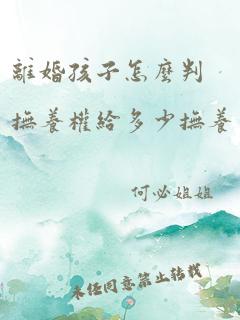 離婚孩子怎麼判
撫養權給多少撫養
何必姐姐
未經同意禁止轉載